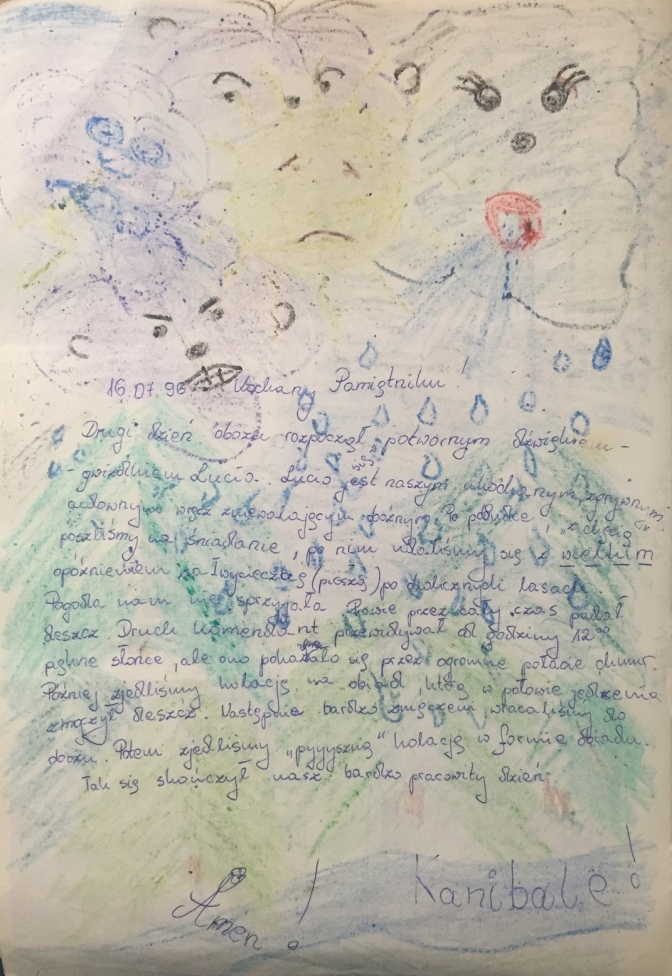 16.07.96 Kochany Pamiętniku!
Drugi dzień obozu rozpoczął potwornym dźwiękiem -
- gwizdkiem Lucio. Lucio jest naszym ukochanym,
wręcz zniewalającym Po pobudce i "z chęcią"
poszliśmy na śniadanie, po nim udaliśmy się z wielkim
opóźnieniem na wycieczkę (pieszą) po okolicznych lasach
Pogoda nam nie sprzyjała Prawie przez cały czas padał
deszcz. Druch komendant przewidywał od godziny 12⁰⁰
piękne słońce, ale ono pokazało się przez ogromne połacie chmur.
Później zjedliśmy kolację na obiad którą w połowie jedzenia
zmoczył deszcz. Następnie bardzo zmęczeni wracaliśmy do
obozu. Potem zjedliśmy "pyyyszną" kolację w formie obiadu.
Tak się skończył nasz bardzo pracowity dzień.
Amen!
Kanibale!